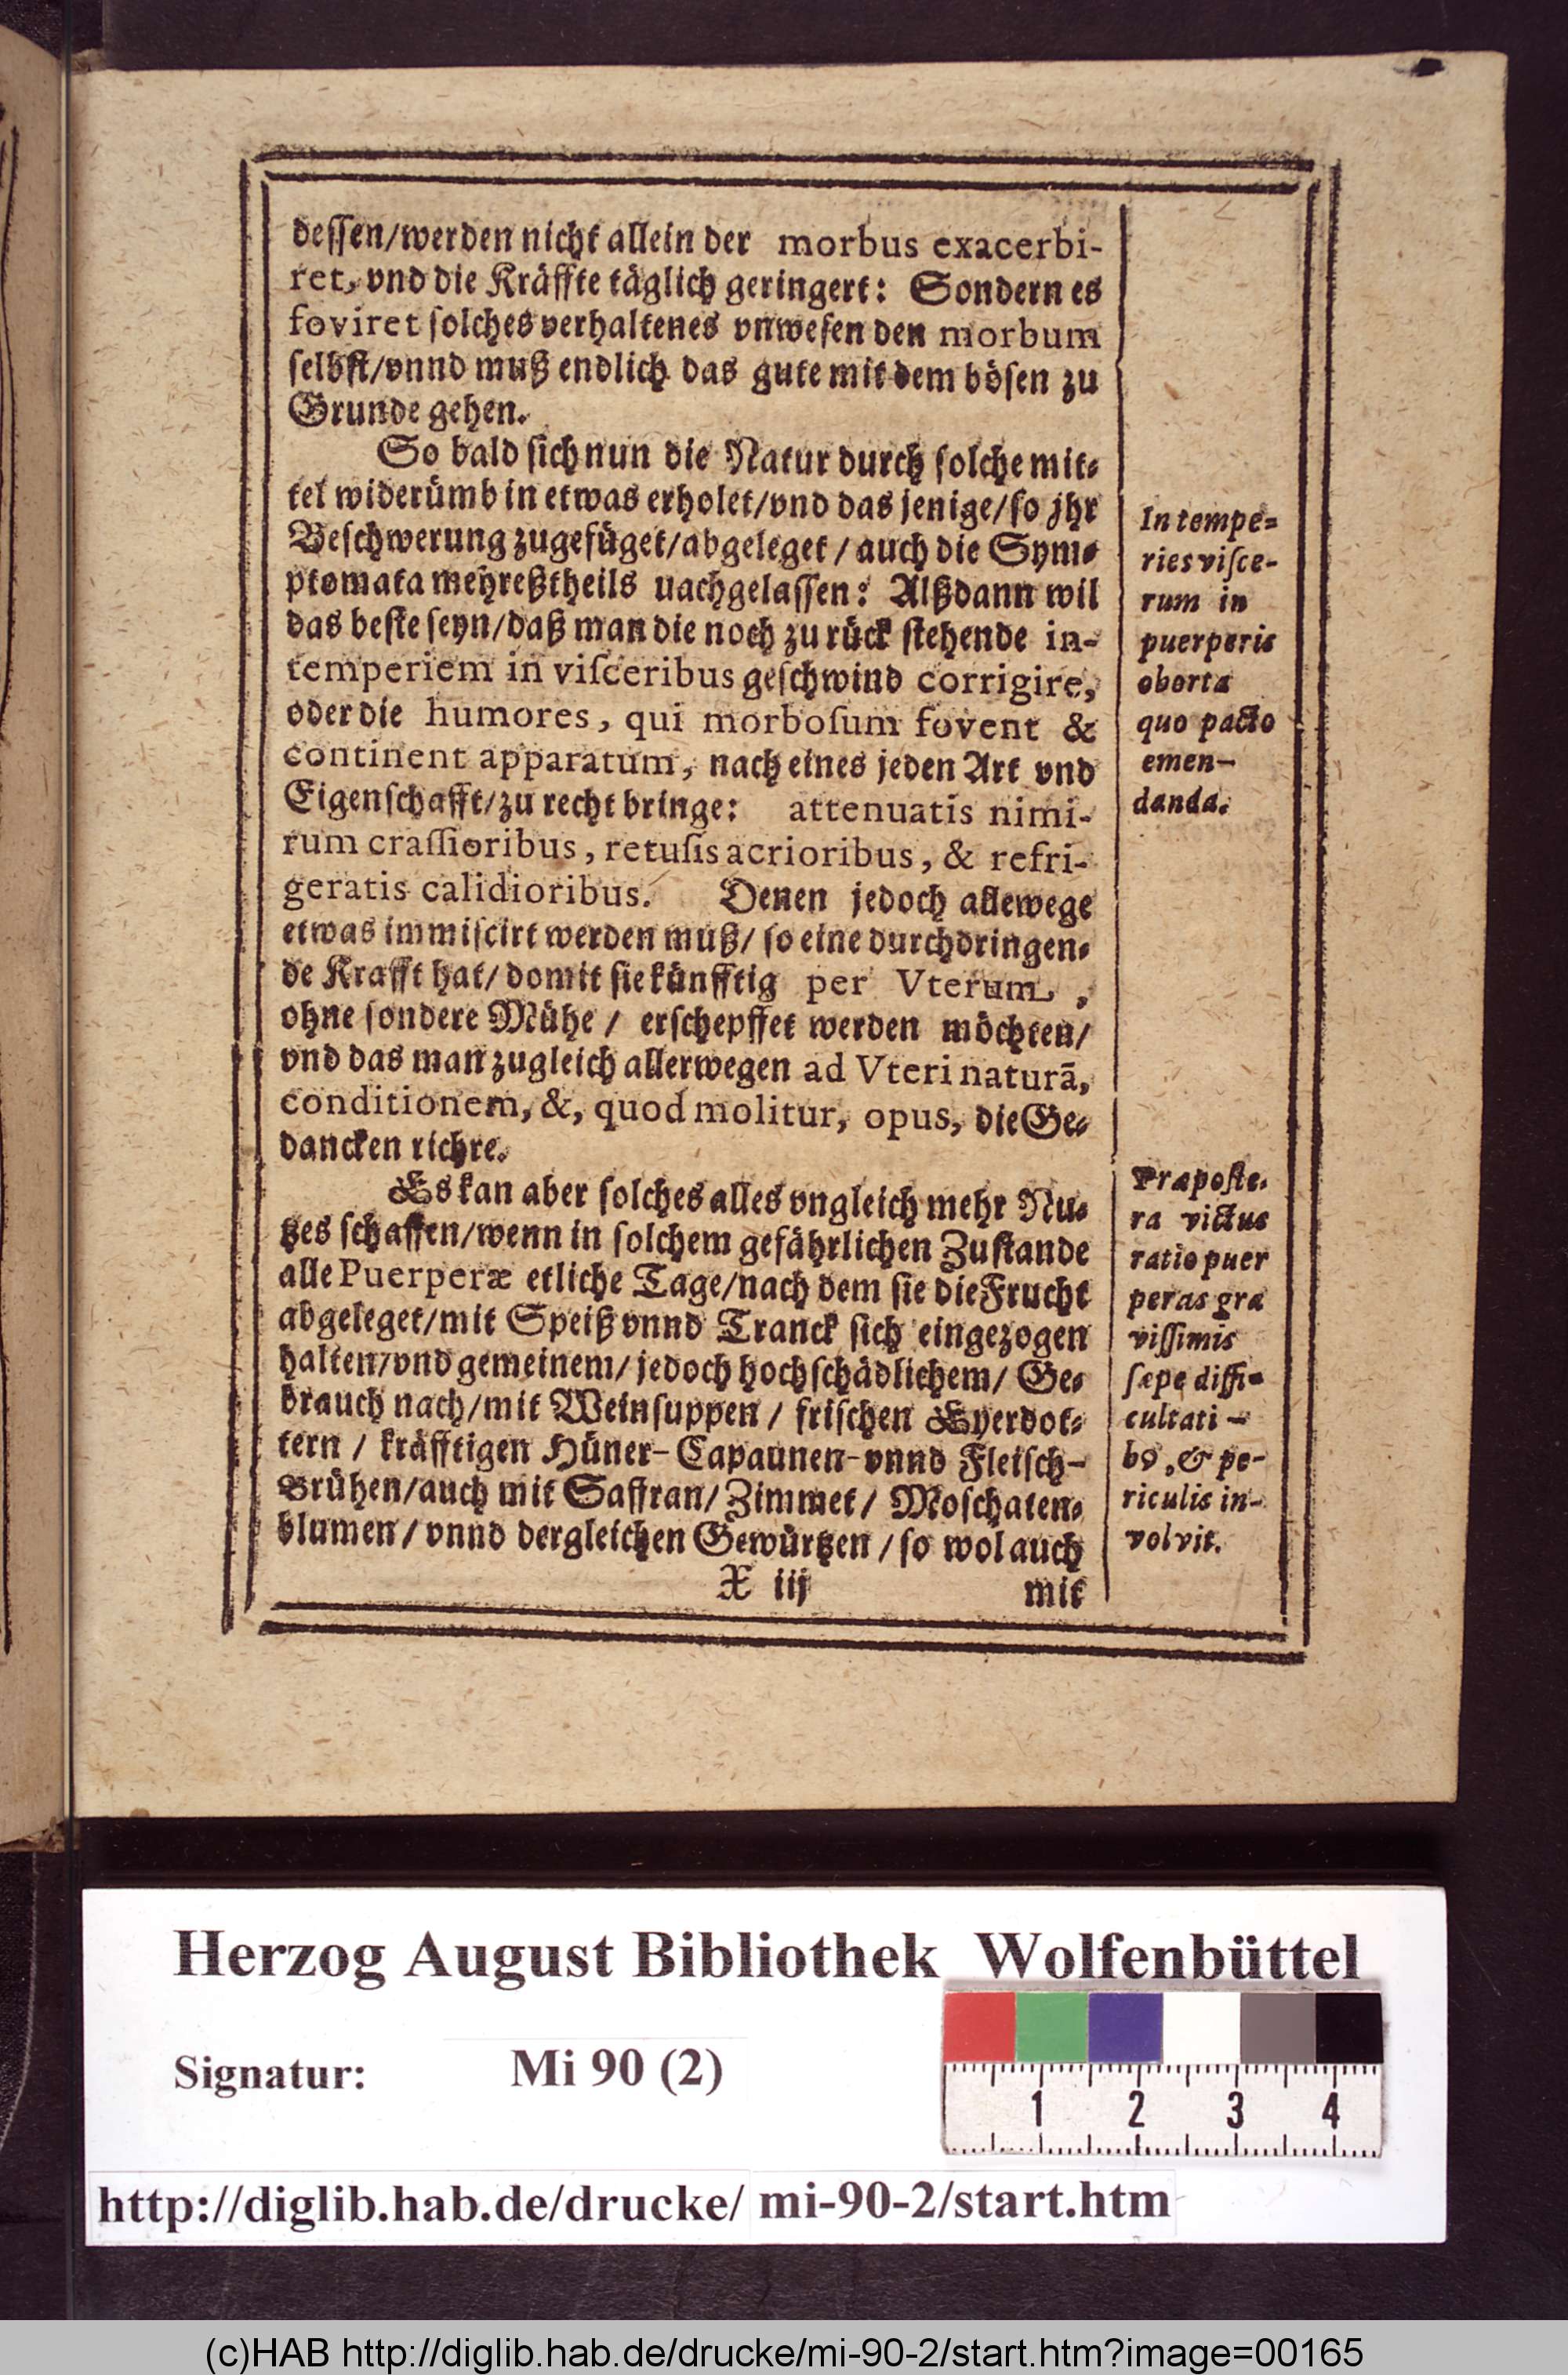 dessen/werden nicht allein der morbus exacerbi-
ret, vnd die Kräffte täglich geringert: Sondern es
foviret ſolches verhaltenes vnweſen den morbum
ſelbſt/vnnd muß endlich das gute mit dem böſen zu
Grunde gehen.
So bald ſich nun die Natur durch ſolche mit-
tel widerümb in etwas erholet/vnd das jenige/ſo jhr
Beſchwerung zugefüget/abgeleget / auch die Sym-
ptomata mehreßtheils uachgelaſſen: Alßdann wil
das beſte ſeyn/daß man die noch zu rück ſtehende in-
temperiem in viſceribus geſchwind corrigire,
oder die humores, qui morboſum fovent &
continent apparatum, nach eines jeden Art vnd
Eigenſchafft/zu recht bringe: attenuatis nimi-
rum craſſioribus, retuſis acrioribus, & refri-
geratis calidioribus. Denen jedoch allewege
etwas immiſcirt werden muß/ ſo eine durchdringen-
de Krafft hat/ domit ſie künfftig per Vterum,
ohne ſondere Mühe / erſchepffet werden möchten/
vnd das man zugleich allerwegen ad Vteri naturā,
conditionem, &, quod molitur, opus, die Ge-
dancken richre.
Es kan aber ſolches alles vngleich mehr Nu-
tzes ſchaffen/wenn in ſolchem gefährlichen Zuſtande
alle Puerperæ etliche Tage/nach dem ſie die Frucht
abgeleget/mit Speiß vnnd Tranck ſich eingezogen
halten/vnd gemeinem/ jedoch hochſchädlichem/ Ge-
brauch nach/mit Weinſuppen / friſchen Eyerdot-
tern / kräfftigen Hüner- Capaunen- vnnd Fleiſch-
Brühen/auch mit Saffran/ Zimmet / Moſchaten-
blumen / vnnd dergleichen Gewürtzen / ſo wol auch
X iij mit
Intempe-
ries viſce-
rum in
puerperis
oborta
quo pacto
emen-
danda.
Præpoſte-
ra victus
ratio puer
peras gra
viſſimis
ſæpe diffi-
cultati-
bꝰ, & pe-
riculis in-
volvit.
Herzog August Bibliothek Wolfenbüttel
Signatur: Mi 90 (2)
1 2 3 4
http://diglib.hab.de/drucke/ mi-90-2/start.htm
(c)HAB http://diglib.hab.de/drucke/mi-90-2/start.htm?image=00165